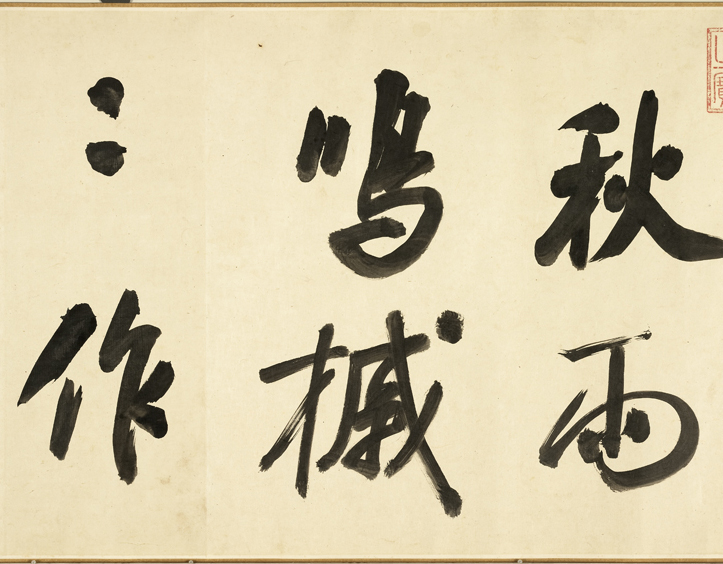 秋雨
鳴槭
〻作